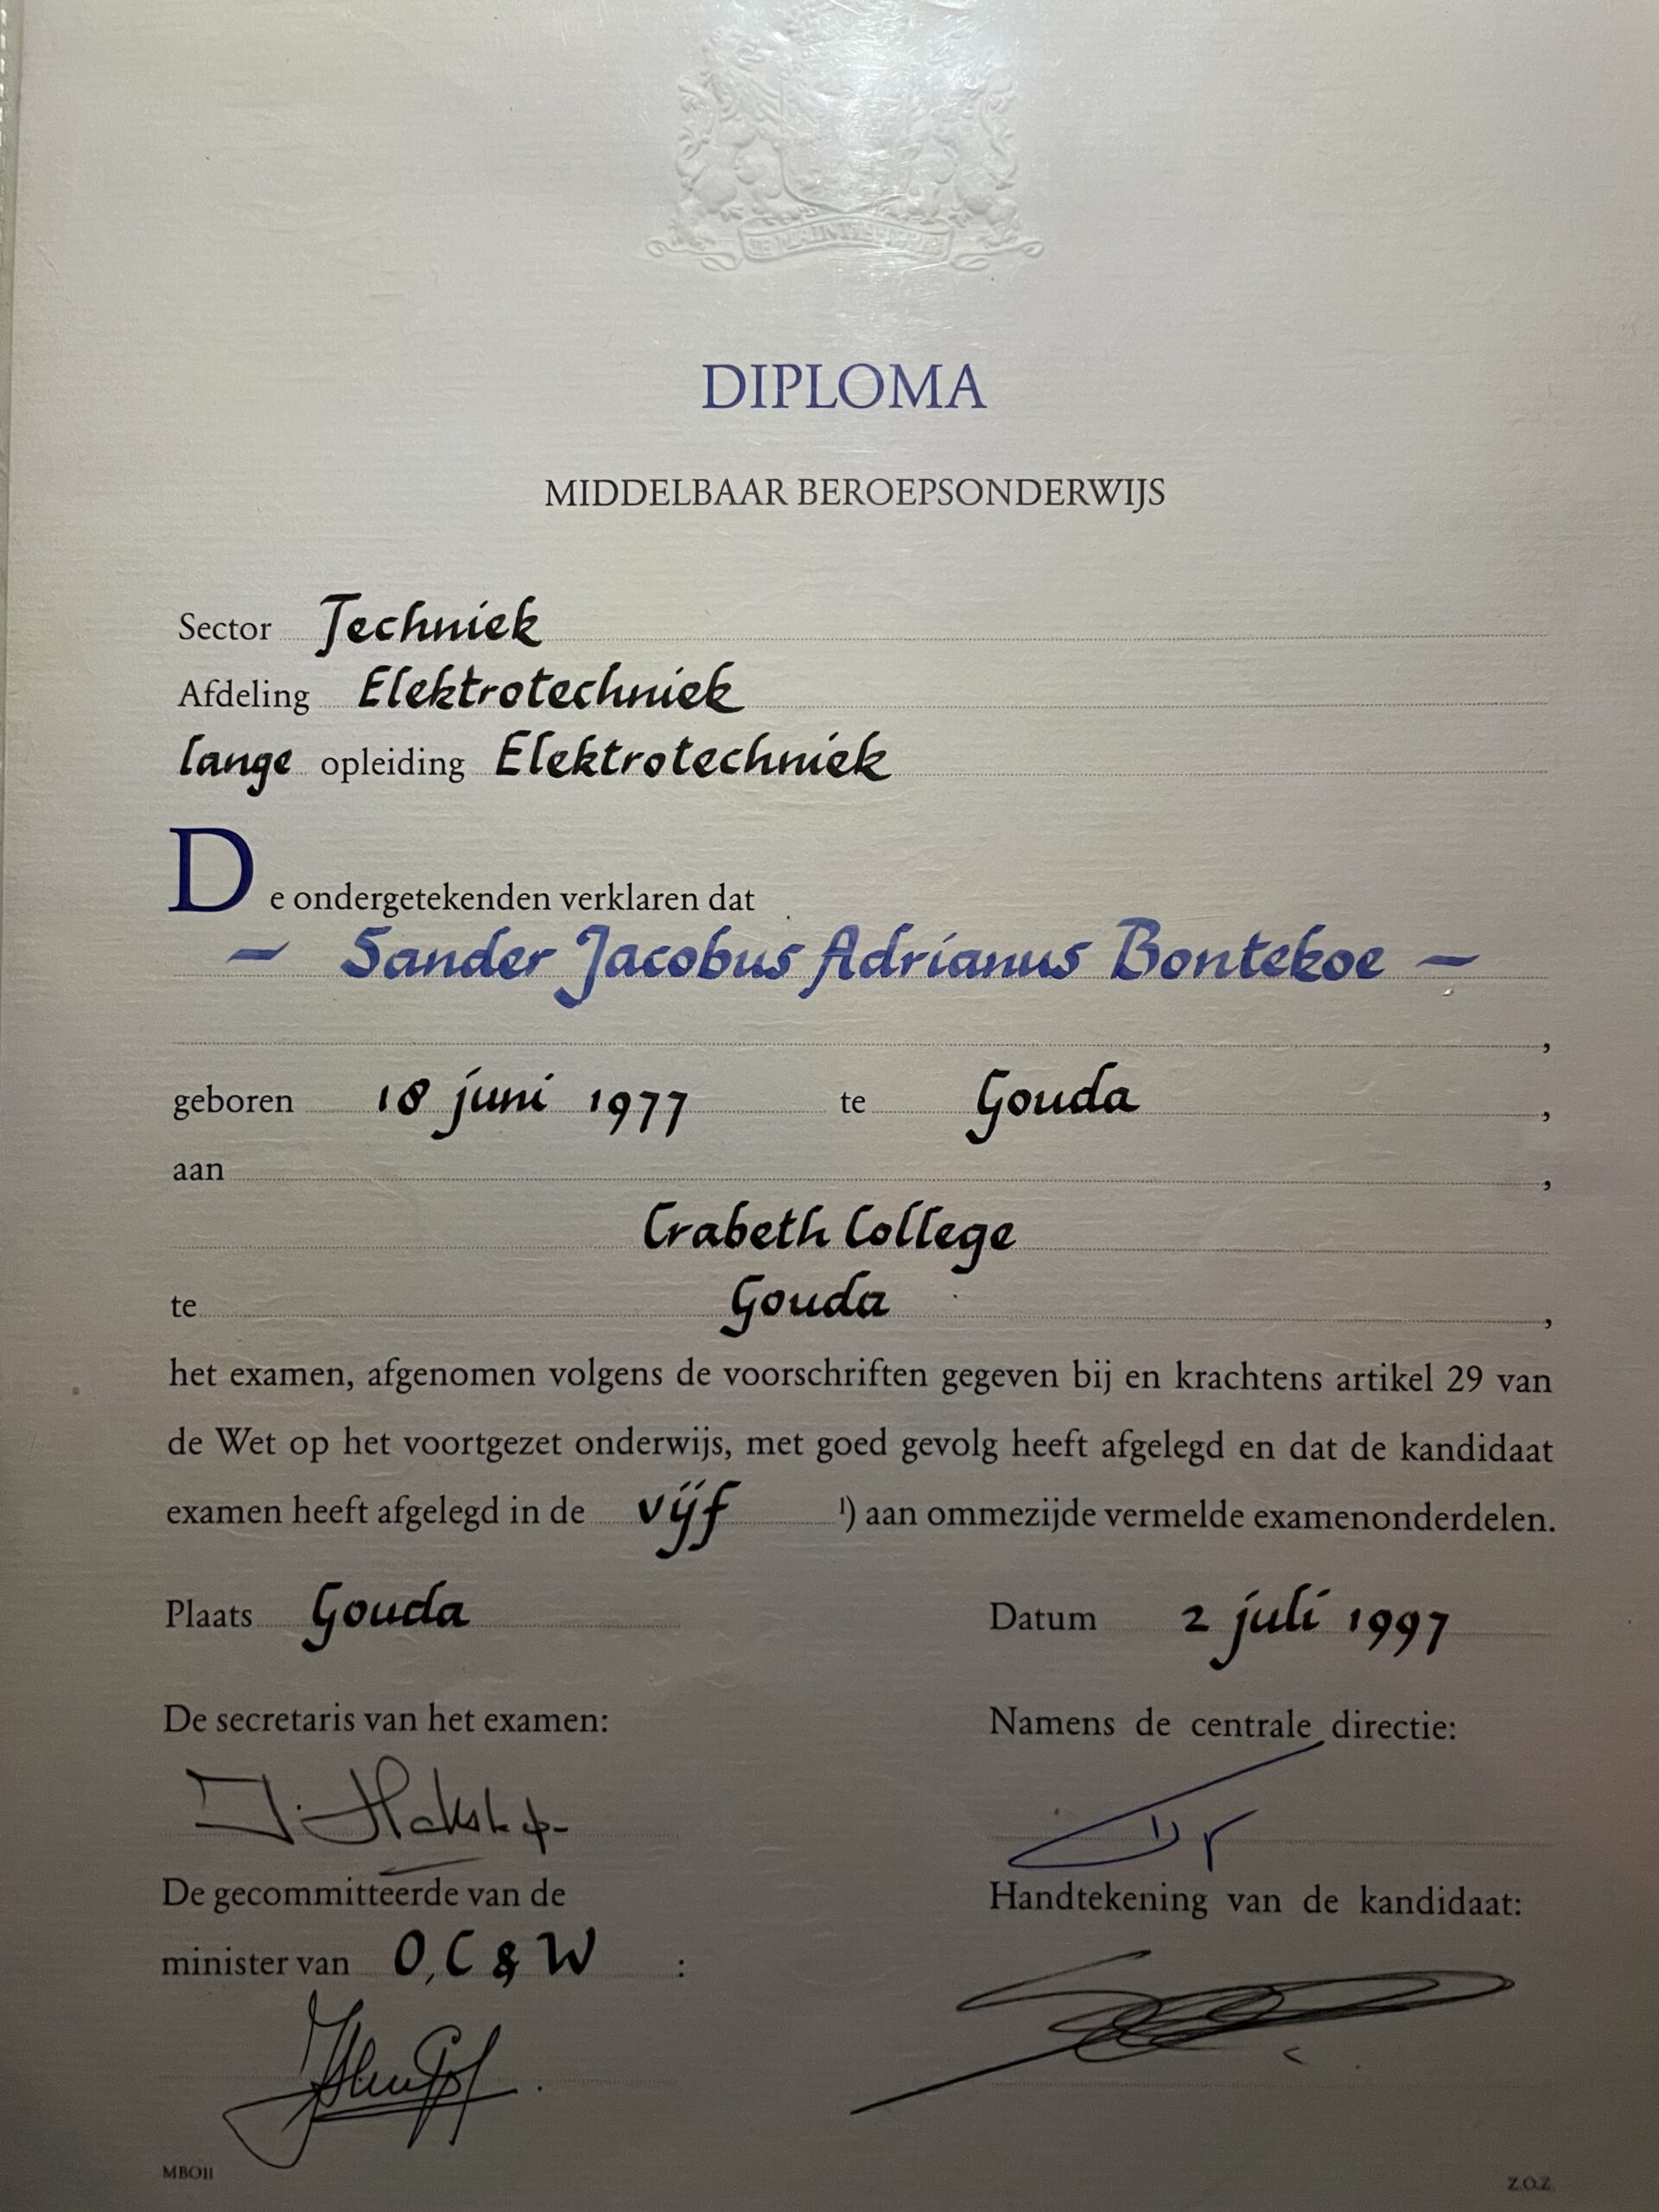 DIPLOMA
MIDDELBAAR BEROEPSONDERWIJS
Sector Techniek
Afdeling Elektrotechniek
lange opleiding Elektrotechniek
De ondergetekenden verklaren dat
– Sander Jacobus Adrianus Bontekoe –
,
geboren 18 juni 1977 te Gouda ,
aan ,
Crabeth College
te Gouda ,
het examen, afgenomen volgens de voorschriften gegeven bij en krachtens artikel 29 van
de Wet op het voortgezet onderwijs, met goed gevolg heeft afgelegd en dat de kandidaat
examen heeft afgelegd in de vijf ¹) aan ommezijde vermelde examenonderdelen.
Plaats Gouda Datum 2 juli 1997
De secretaris van het examen: Namens de centrale directie:
De gecommitteerde van de Handtekening van de kandidaat:
minister van O,C & W :
MBO11 Z.O.Z.